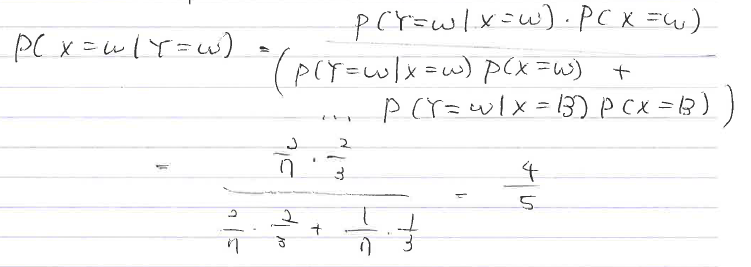 P(X=W|Y=W) = P(Y=W|X=W) · P(X=W)
(P(Y=W|X=W) P(X=W) +
... P(Y=W|X=B) P(X=B))
= 2/n · 2/3
2/n · 2/3 + 1/n · 1/3 = 4/5